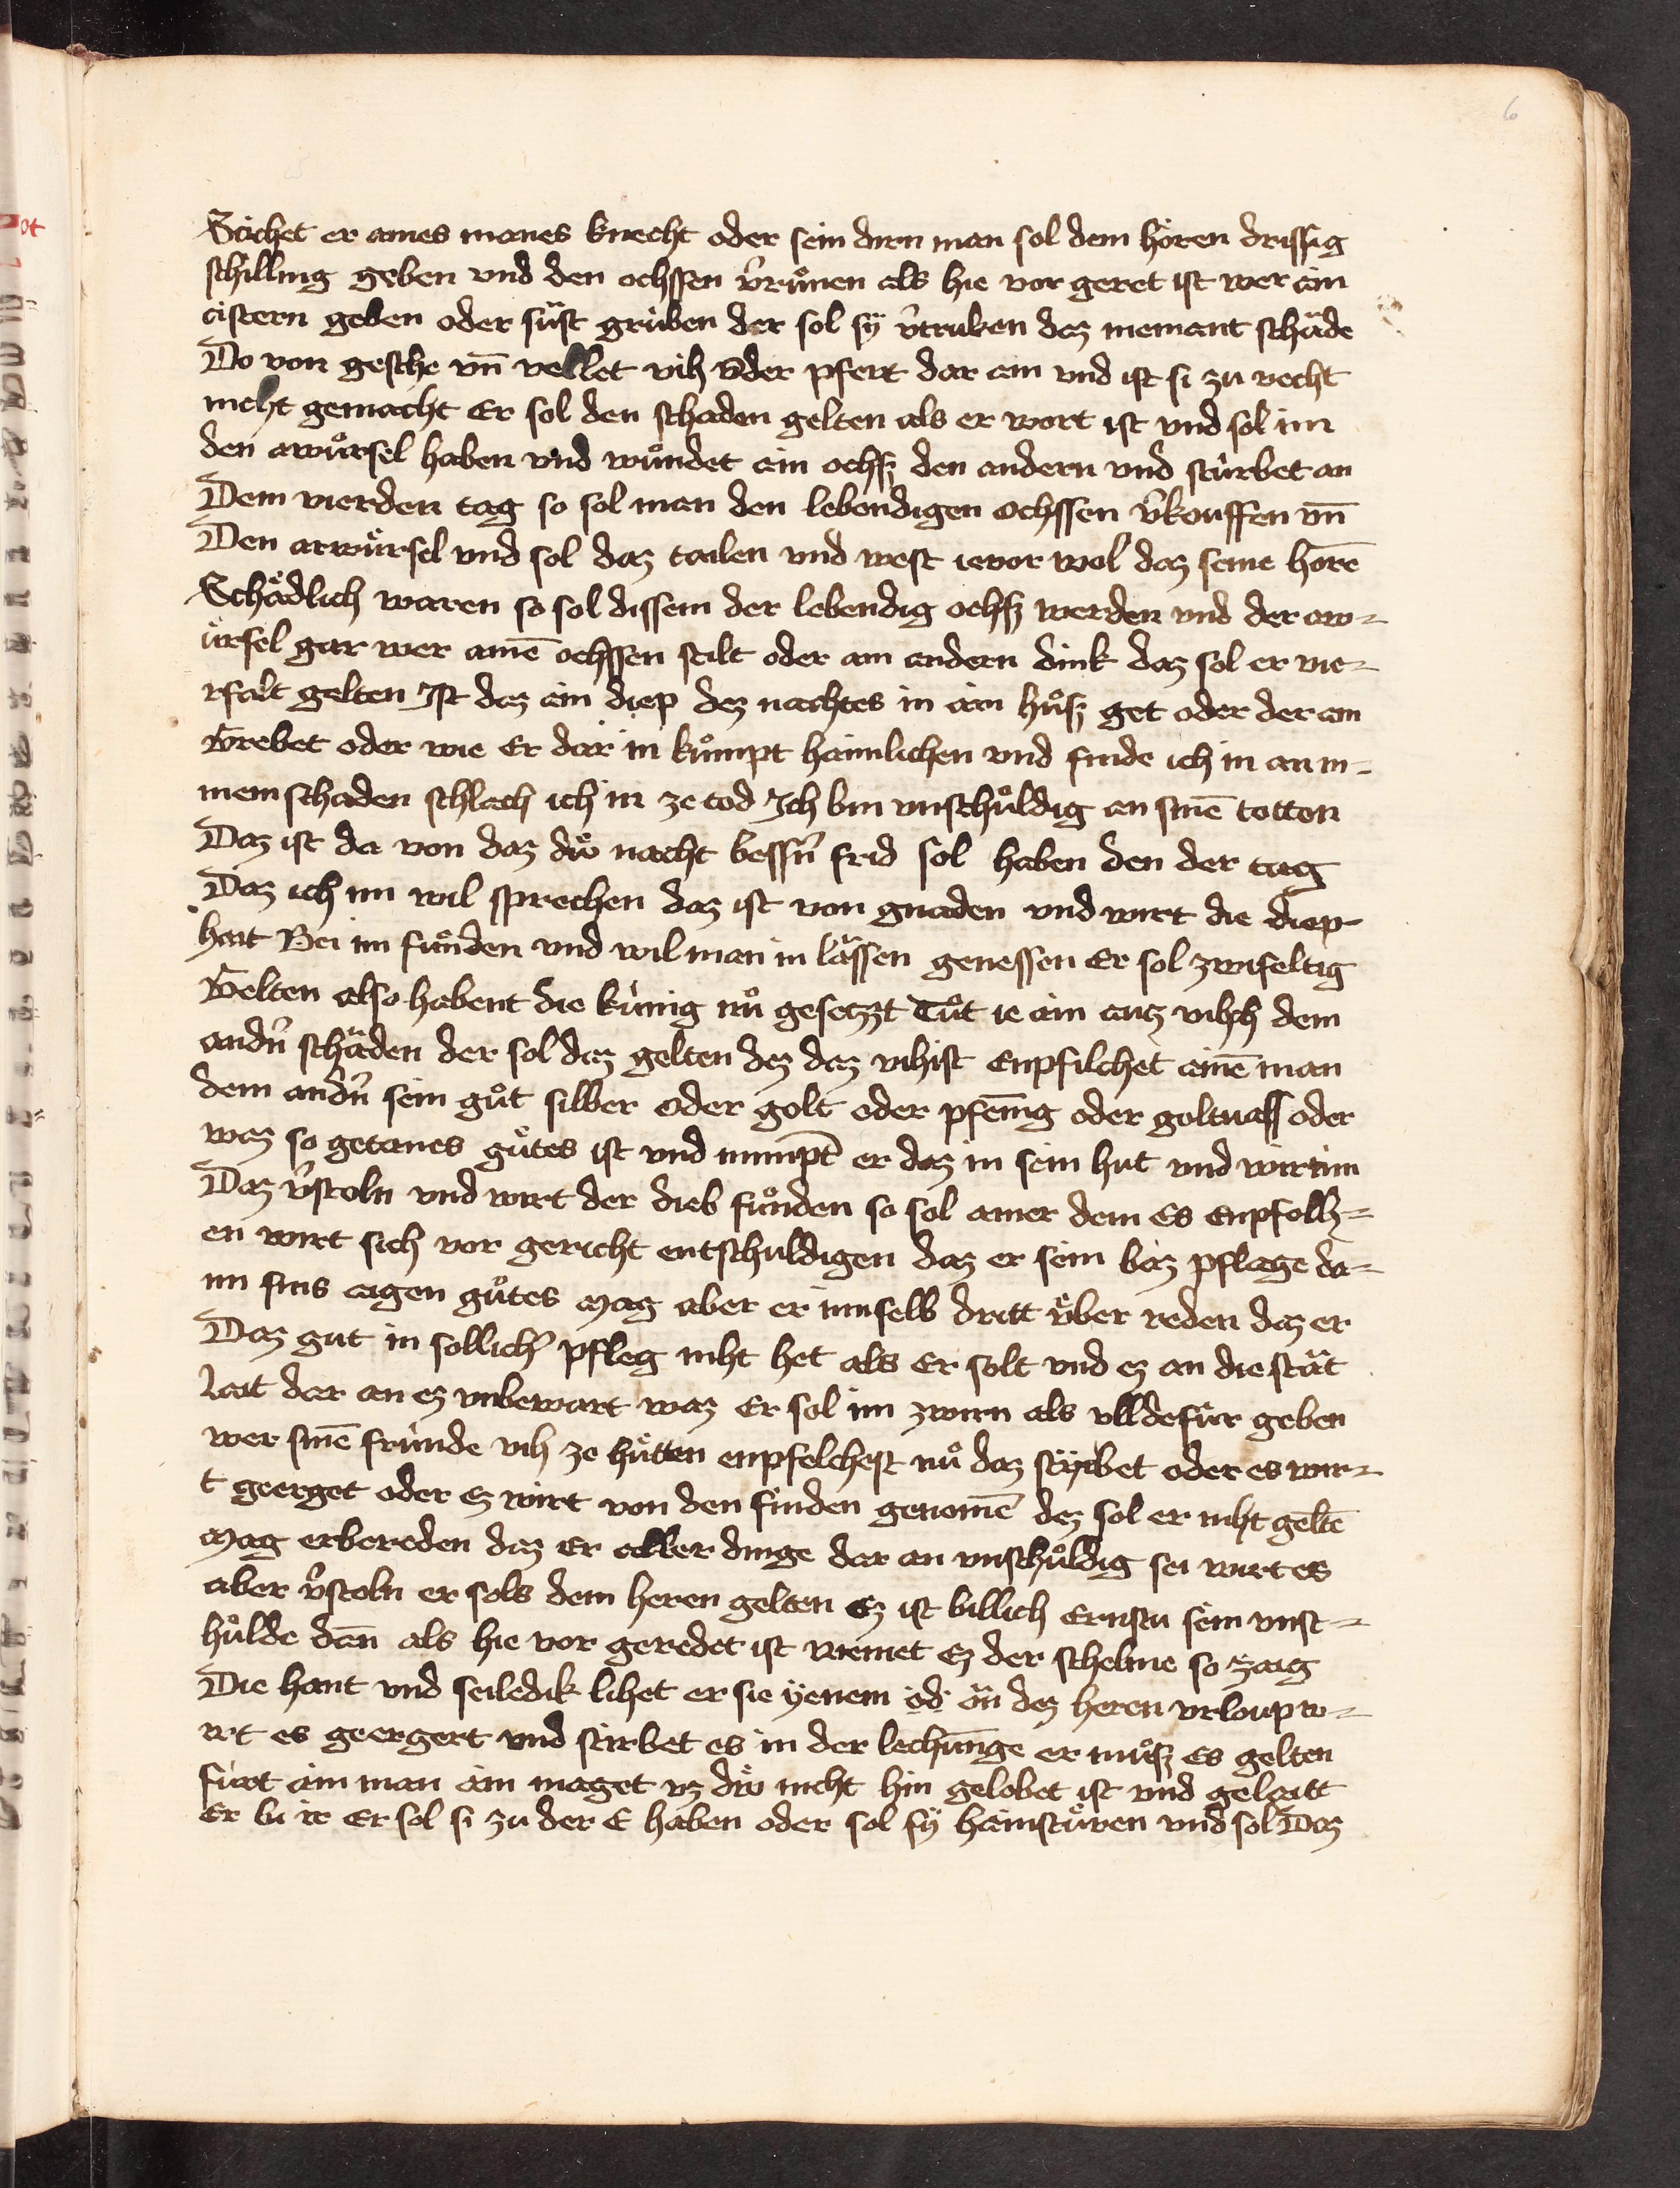 6
Stichet er aines manes knecht oder sein dirn man sol dem hören drissig
schilling geben vnd den ochssen v̂růmen als hie vor geret ist wer ain
cistern geben oder sust grůben der sol sÿ v̂truken daz niemant schäde
Do von gesche vn̄ vellet vih oder pfert dar ein vnd ist si zu recht
nicht gemacht Er sol den schaden gelten als er wort ist vnd sol im
den awůrsel haben vnd wůndet ain ochsz den andern vnd stùrbet an
Dem vierden tag so sol man den lebendigen ochssen v̂kouffen vn̄
Den arwůrsel vnd sol daz tailen vnd west ievor wol daz seine hōrē
Schädlich waren so sol dissem der lebendig ochsz werden vnd der aw=
ůrsel gar wer ainē ochssen stilt oder ain andern dink daz sol er vie=
rfalt gelten Ist daz ain diep dez nachtes in ain hůsz get oder der ain
Grebet oder wie Er dar in kůmpt haimlichen vnd finde ich in an m=
meinschaden schlach ich in ze tod Ich bin vnschůldig an sinē totten
Daz ist da von daz dů nacht bessn̂ frid sol haben den der tag
Daz ich im wil sprechen daz ist von gnaden vnd wirt die diep
hait Bei im fůnden vnd wil man in lässen genessen Er sol zwifeltig
Gelten also habent die kùnig nů gesetzzt Tůt ie ain antz vihch dem
andn̂ schäden der sol daz gelten dez daz vihist Enpfilchet ainē man
dem andn̂ sein gůt silber oder golt oder pfenīng oder goltuass oder
waz so getanes gůtes ist vnd nimpt er daz in sein hut vnd wirt im
Daz v̂stoln vnd wirt der dieb fůnden so sol ainer dem Es enpfolh=
en wirt sich vor gericht entschuldigen daz er sein baz pflage da=
nn sins aigen gůtes mag aber er im selb dritt ůber reden daz er
Daz gut in sollicĥ pfleg niht het als Er solt vnd ez an die stät
Lait dar an ez vnbewart waz Er sol im zwirn als vil defùr geben
wer sinē frùnde vih ze hůtten enpfelchest nů daz stÿrbet oder es wir=
t geerget oder ez wirt von den finden genomē dez sol er niht geltē
mag erbereden daz Er aller dinge dar an vnschůldig sei wirt es
aber v̂stoln er sols dem heren gelten Ez ist billich Ernstu sein vnst=
hůlde dan̄ als hie vor geredet ist niemet Ez der schelme so zaig
Die hant vnd seiledik lihet er sie ÿenem od ân dez heren vrloup w=
irt es geergert vnd stirbet es in der lechūnge er můsz Es gelten
fùrt ain man ain maget vz dů nicht hin gelobet ist vnd geleitt
Er bi ir Er sol si zu der E haben oder sol sÿ haimstůren vnd sol Daz